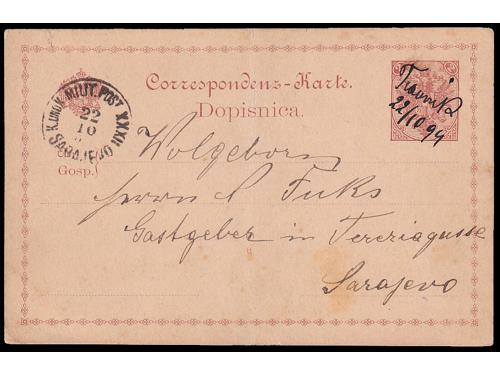 Correspondenz-Karte.
Dopisnica.
K.UND K. MILIT. POST XXXII
22
10
SARAJEVO
Travnik
22/10 99
Gosp.
Wolgeborn
Herrn S Fuks
Gastgeber in Tereziagasse
Sarajevo